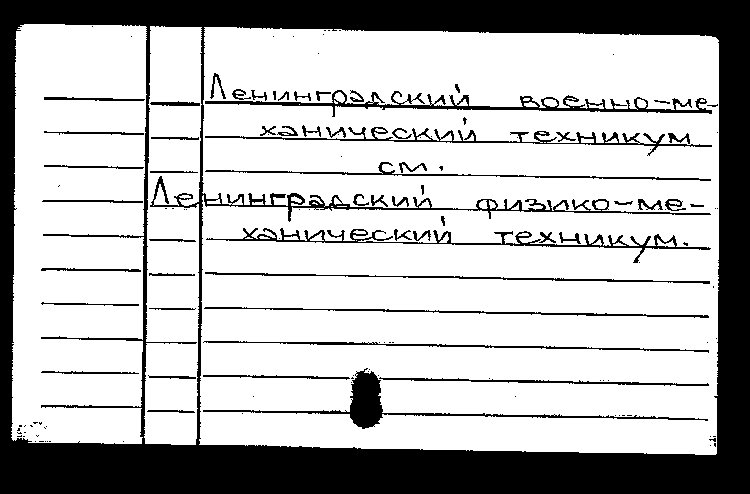 Ленинградский военно-ме-
ханический техникум
см.
Ленинградский физико-ме-
ханический техникум.